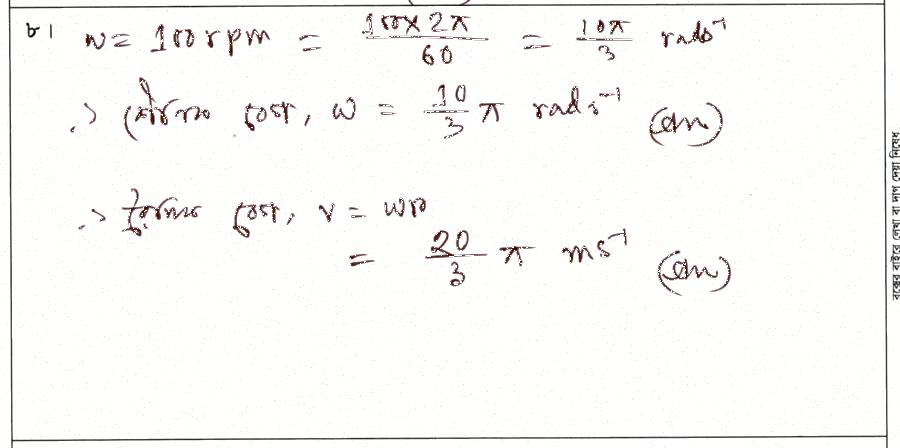 ৮। w = 100 rpm = 100 × 2π / 60 = 10π / 3 rads⁻¹
∴ কৌণিক বেগ, ω = 10/3 π rads⁻¹ (Ans)
∴ রৈখিক বেগ, v = ωr
= 20/3 π ms⁻¹ (Ans)
বক্সের বাইরে লেখা বা দাগ দেয়া নিষেধ